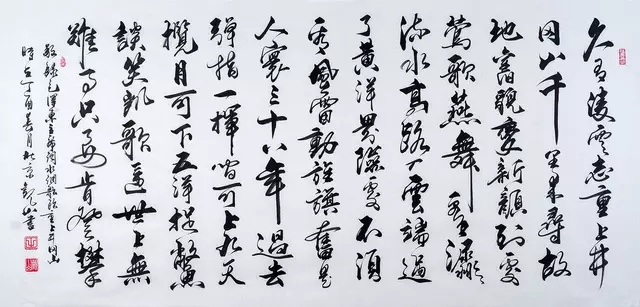 久有凌雲志重上井
岡山千里來尋故
地舊貌變新顏到處
鶯歌燕舞更有潺潺
流水高路入雲端過
了黃洋界險處不須
看風雷動旌旗奮是
人寰三十八年過去
彈指一揮間可上九天
攬月可下五洋捉鱉
談笑凱歌還世上無
難事只要肯登攀
敬錄毛澤東主席詞水調歌頭重上井岡山
時在丁酉春月北京觀山書